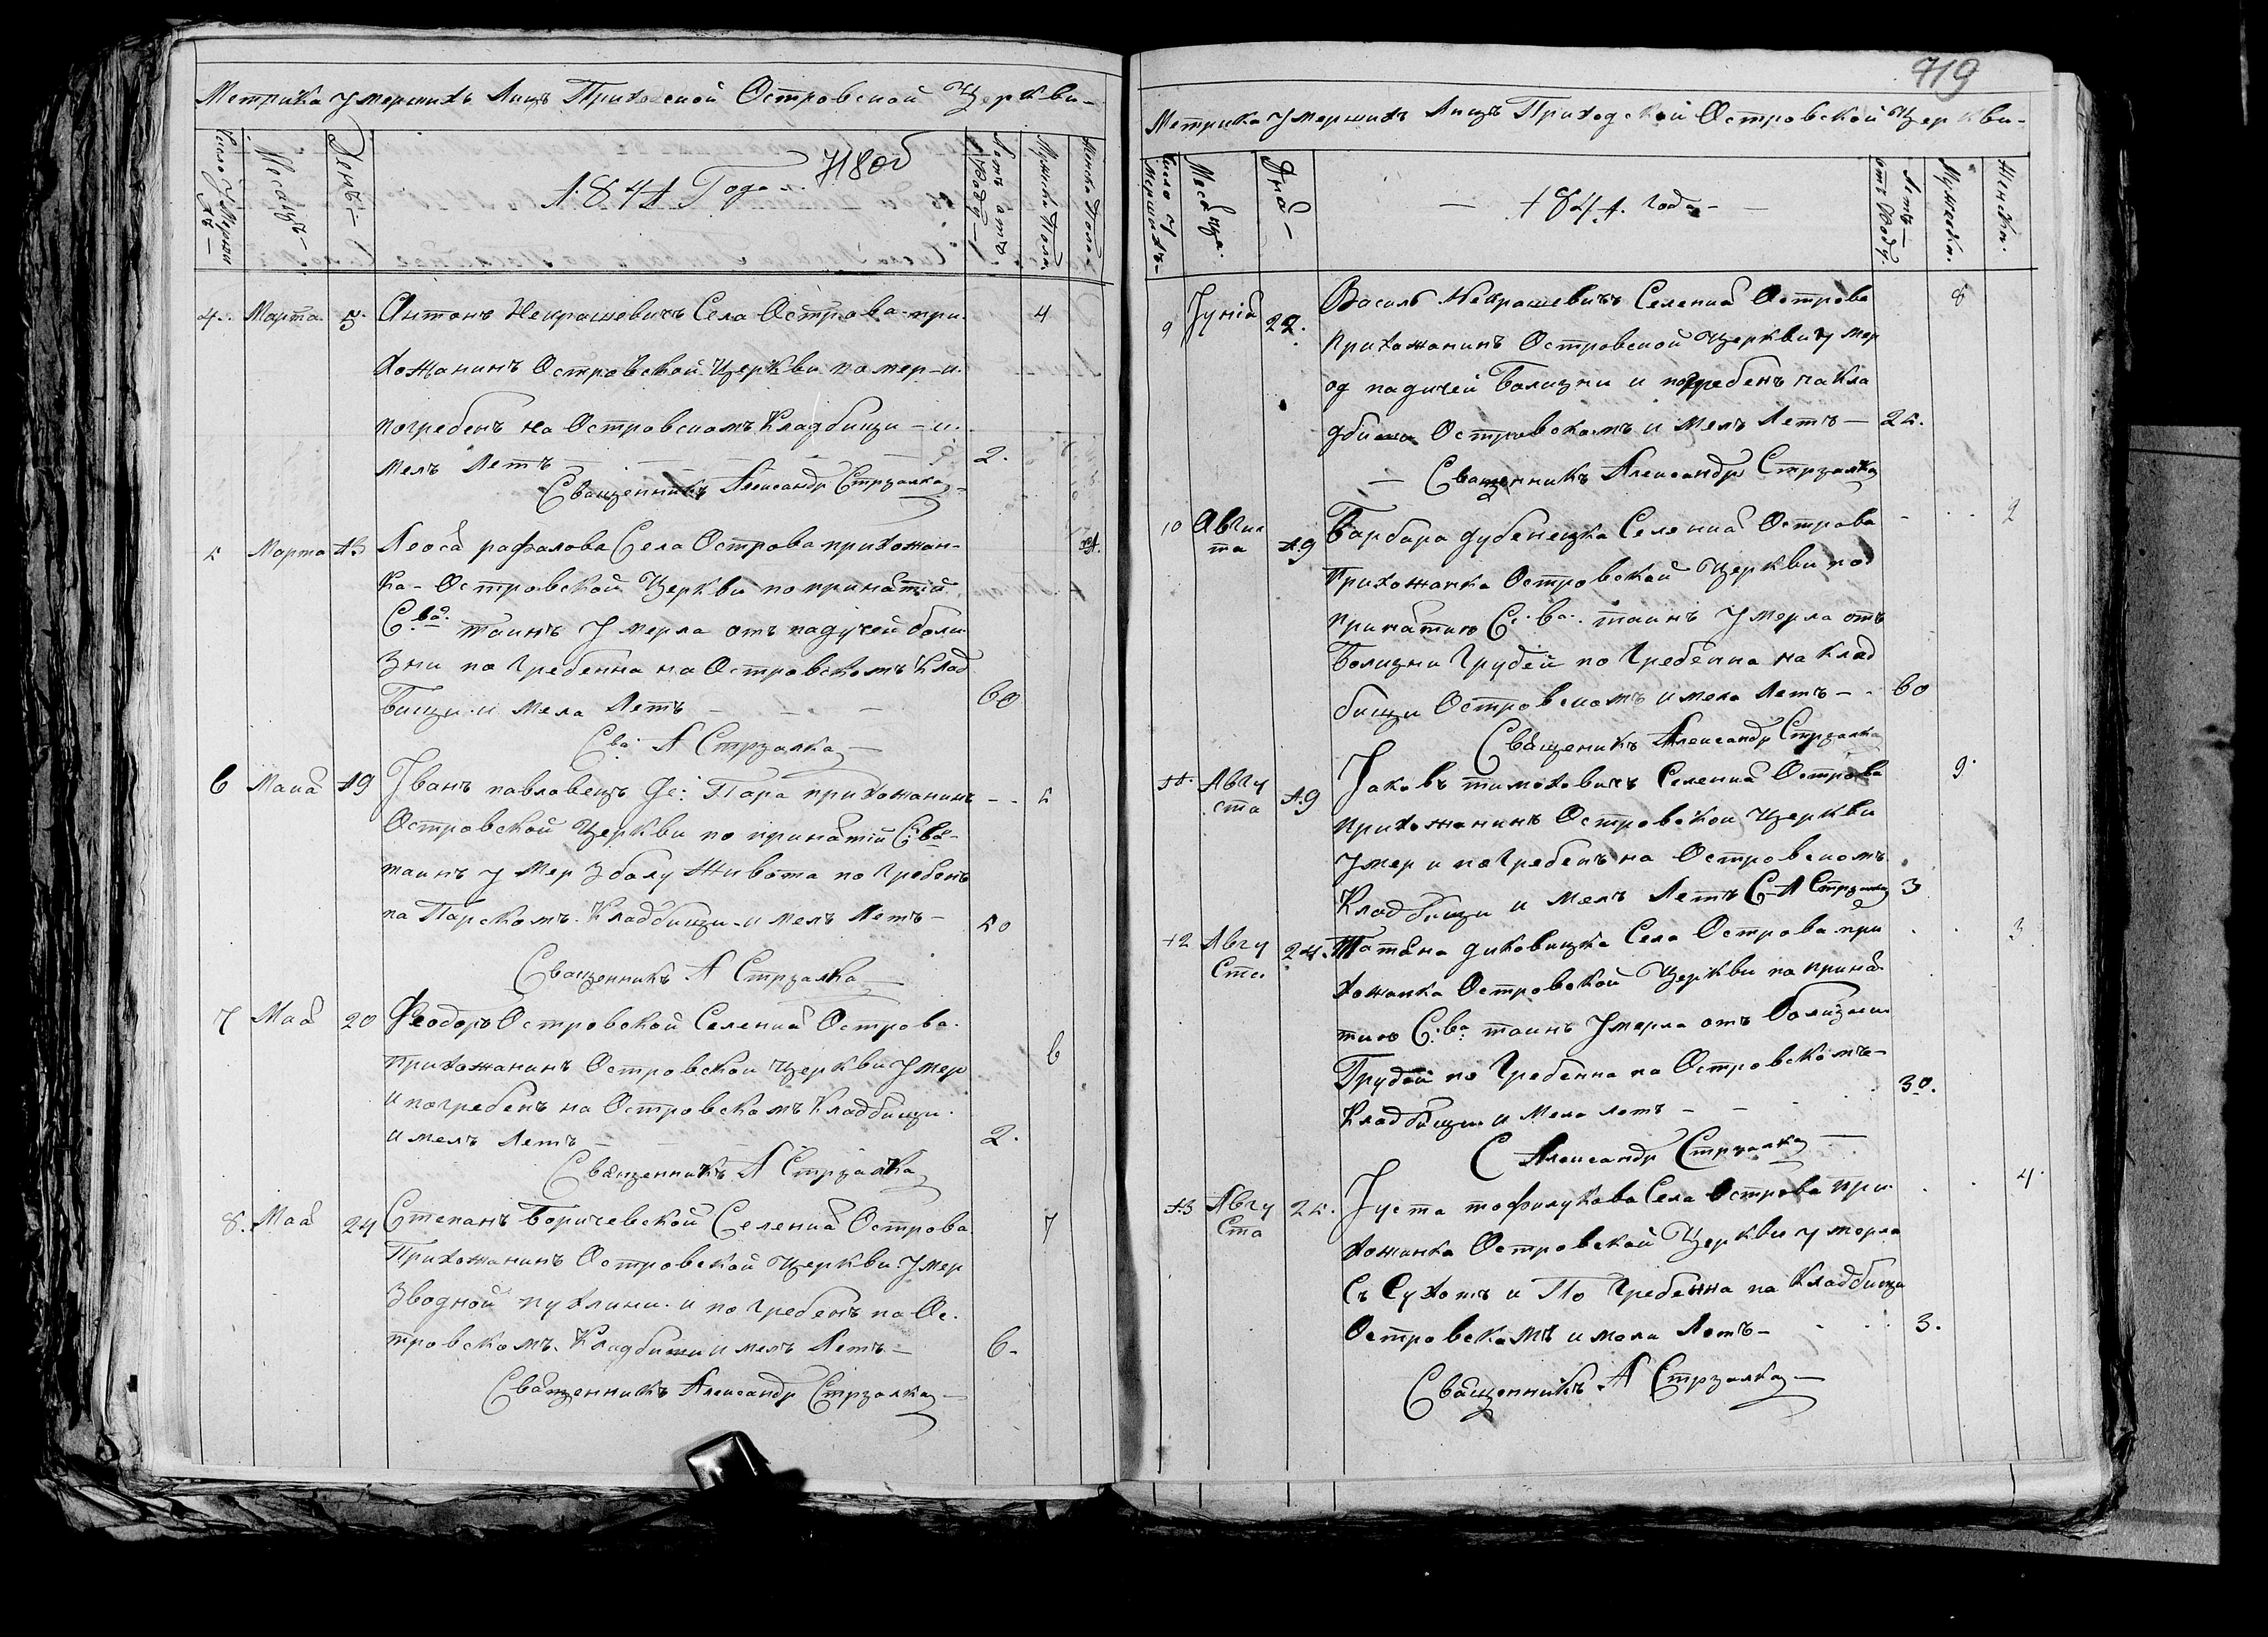 Метрика умершихъ Лицъ Приходской Островской Церкви-
Число Умерши
хъ-
Месяцъ-
День-
718об
1841 Года.
Летъ отъ
Роду-
Мужска Пола
Женска Пола
4. Марта 5. Антонъ Некрашевичъ Села Острова при- 4
хожанинъ Островской Церкви помер-и
погребенъ на Островскомъ Кладбищи - и.
мелъ Летъ 2.
Священникъ Александр Стрзалка
5 Марта 13 Леося рафалова Села Острова прихожан- 1.
ка- Островской Церкви по принятій
С.вя. таинъ Умерла отъ падучей боли
зни погребенна на Островскомъ Клад
бищи и мела Летъ 60
Свя: А Стрзалка
6 Маия 19 Іванъ павловецъ Де: Пара прихожанинъ - - 5
Островской Церкви по принятій С:вя-
таинъ умер Зболу Живота погребенъ
на Парскомъ Кладбищи-имелъ Летъ- 50
Священникъ А Стрзалка
7 Мая 20 Феодоръ Островской Селения Острова.
прихожанинъ Островской Церкви Умер 6
и погребенъ на Островскомъ Кладбищи.
имелъ Летъ 2.
Священникъ А Стрзалка
8. Мая 24 Степанъ Боричевской Селения Острова 7
Прихожанинъ Островской Церкви Умер
Зводной пухлини. и погребенъ на Ос.
тровскомъ. Кладбищи имелъ Летъ- 6-
Священникъ Александр Стрзалка-
719
Метрика Умершихъ Лицъ Приходской Островской Церкви-
Число У
мершихъ-
Месяца.
Дня-
- 1841. Года -
Летъ-
отъ Роду.
Мужески.
Женски.
9 Іуния 22. Василь Некрашевичъ Селения Острова 8
прихожанинъ Островской Церкви Умер
од падучей Болизни и погребенъ на Кла
дбищи Островскомъ и мелъ Летъ- 25.
- Священникъ Александр Стрзалка
10 Авгус
та 19 Барбара дубенецка Селения Острова - 2
Прихожанка Островской Церкви под
принятию С: вя: таинъ Умерла отъ
Болизни Грудей погребенна на Клад
бищи Островскомъ имела Летъ - - 60
Священикъ Александр Стрзалка
11. Авгу
ста 19 Іаковъ тимоховичъ Селения Острова 9.
прихожанинъ Островской Церкви
Умер и погребенъ на Островскомъ
Кладбищи и мелъ Летъ С-А Стрзалка 3
12 Авгу
Ста 24. Татяна диковицка Села Острова при 3
хожанка Островской Церкви по приня
тию С:вя: таинъ Умерла отъ Болизни
Грудей погребенна на Островскомъ-
Кладбищи и мела летъ - - 30.
С Александр Стрзалка
13 Авгу
Ста 25. Іуста тофилукова Села Острова при 4.
хожанка Островской Церкви умерла
Съ Сухотъ и По гребенна на Кладбищи
Островскомъ имела Летъ- 3.
Священникъ А Стрзалка-